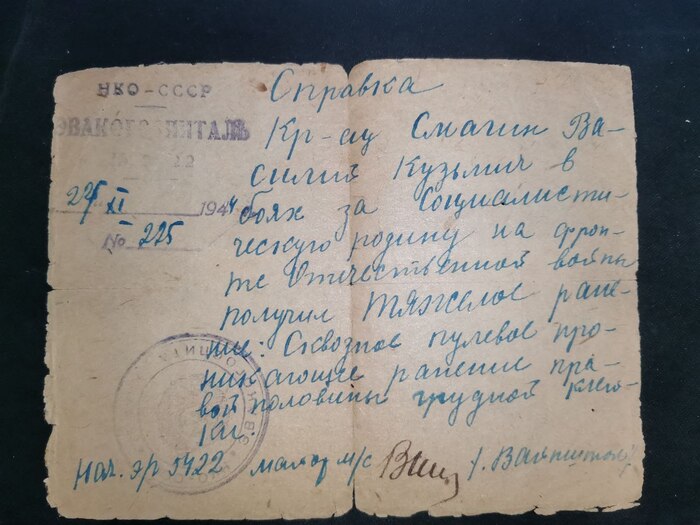 НКО-СССР
ЭВАКОГОСПИТАЛЬ
22/XI 1944
№ 225
Справка
Кр-ец Смагин Ва-
силий Кузьмич в
боях за Социалисти-
ческую родину на фрон-
те Отечественной войны
получил тяжелое ране-
ние: Сквозное пулевое про-
никающее ранение пра-
вой половины грудной клет-
ки.
Нач. эг 5422 майор м/с